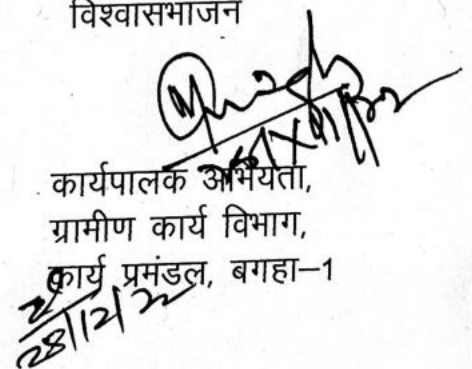 विश्वासभाजन
कार्यपालक अभियंता,
ग्रामीण कार्य विभाग,
कार्य प्रमंडल, बगहा–1
28/12/22